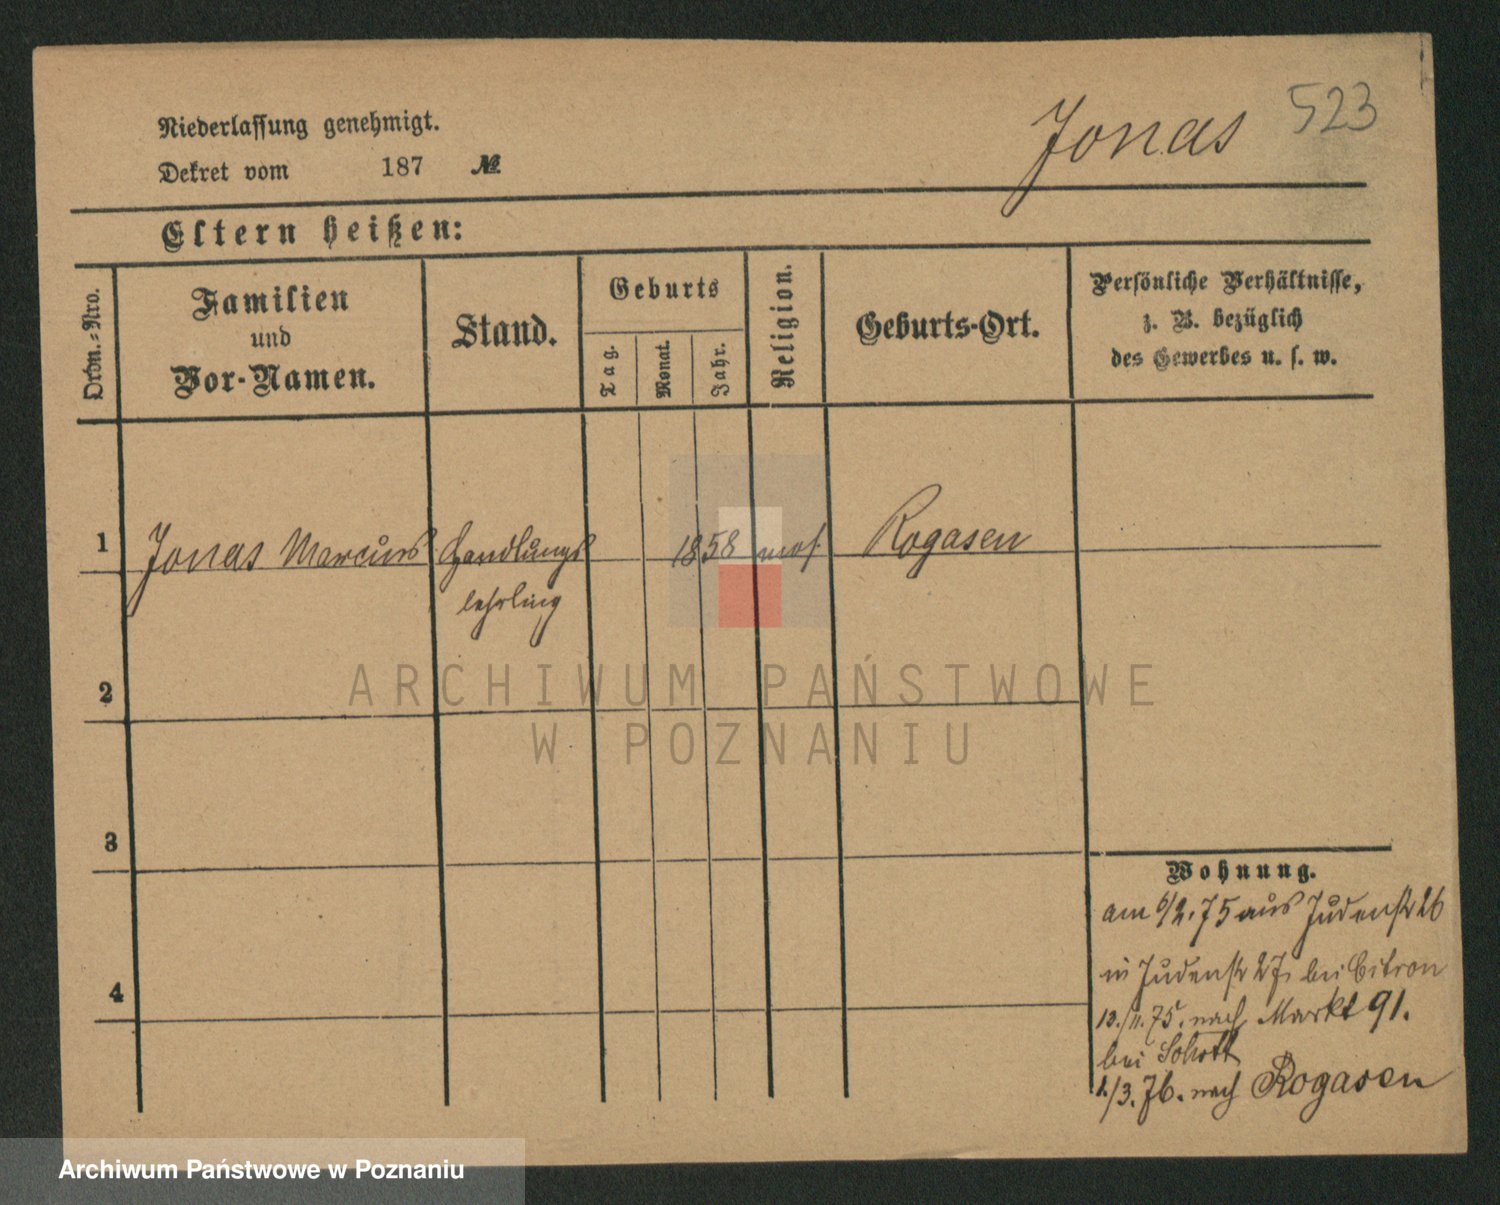 Niederlassung genehmigt.
Dekret vom 187 №
Jonas 523
Eltern heißen:
Ordn.-Nro.
Familien
und
Vor-Namen.
Stand.
Geburts
Tag.
Monat.
Jahr.
Religion.
Geburts-Ort.
Persönliche Verhältnisse,
z. B. bezüglich
des Gewerbes u. s. w.
1 Jonas Marcus Handlungs 1858 mos. Rogasen
lehrling
2
3
4
Wohnung.
am 6/2.75 aus Judenstr 26
in Judenstr 27 bei Citron
12./11.75. nach Markt 91.
bei Schott
1./3.76. nach Rogasen
ARCHIWUM PAŃSTWOWE
W POZNANIU
Archiwum Państwowe w Poznaniu